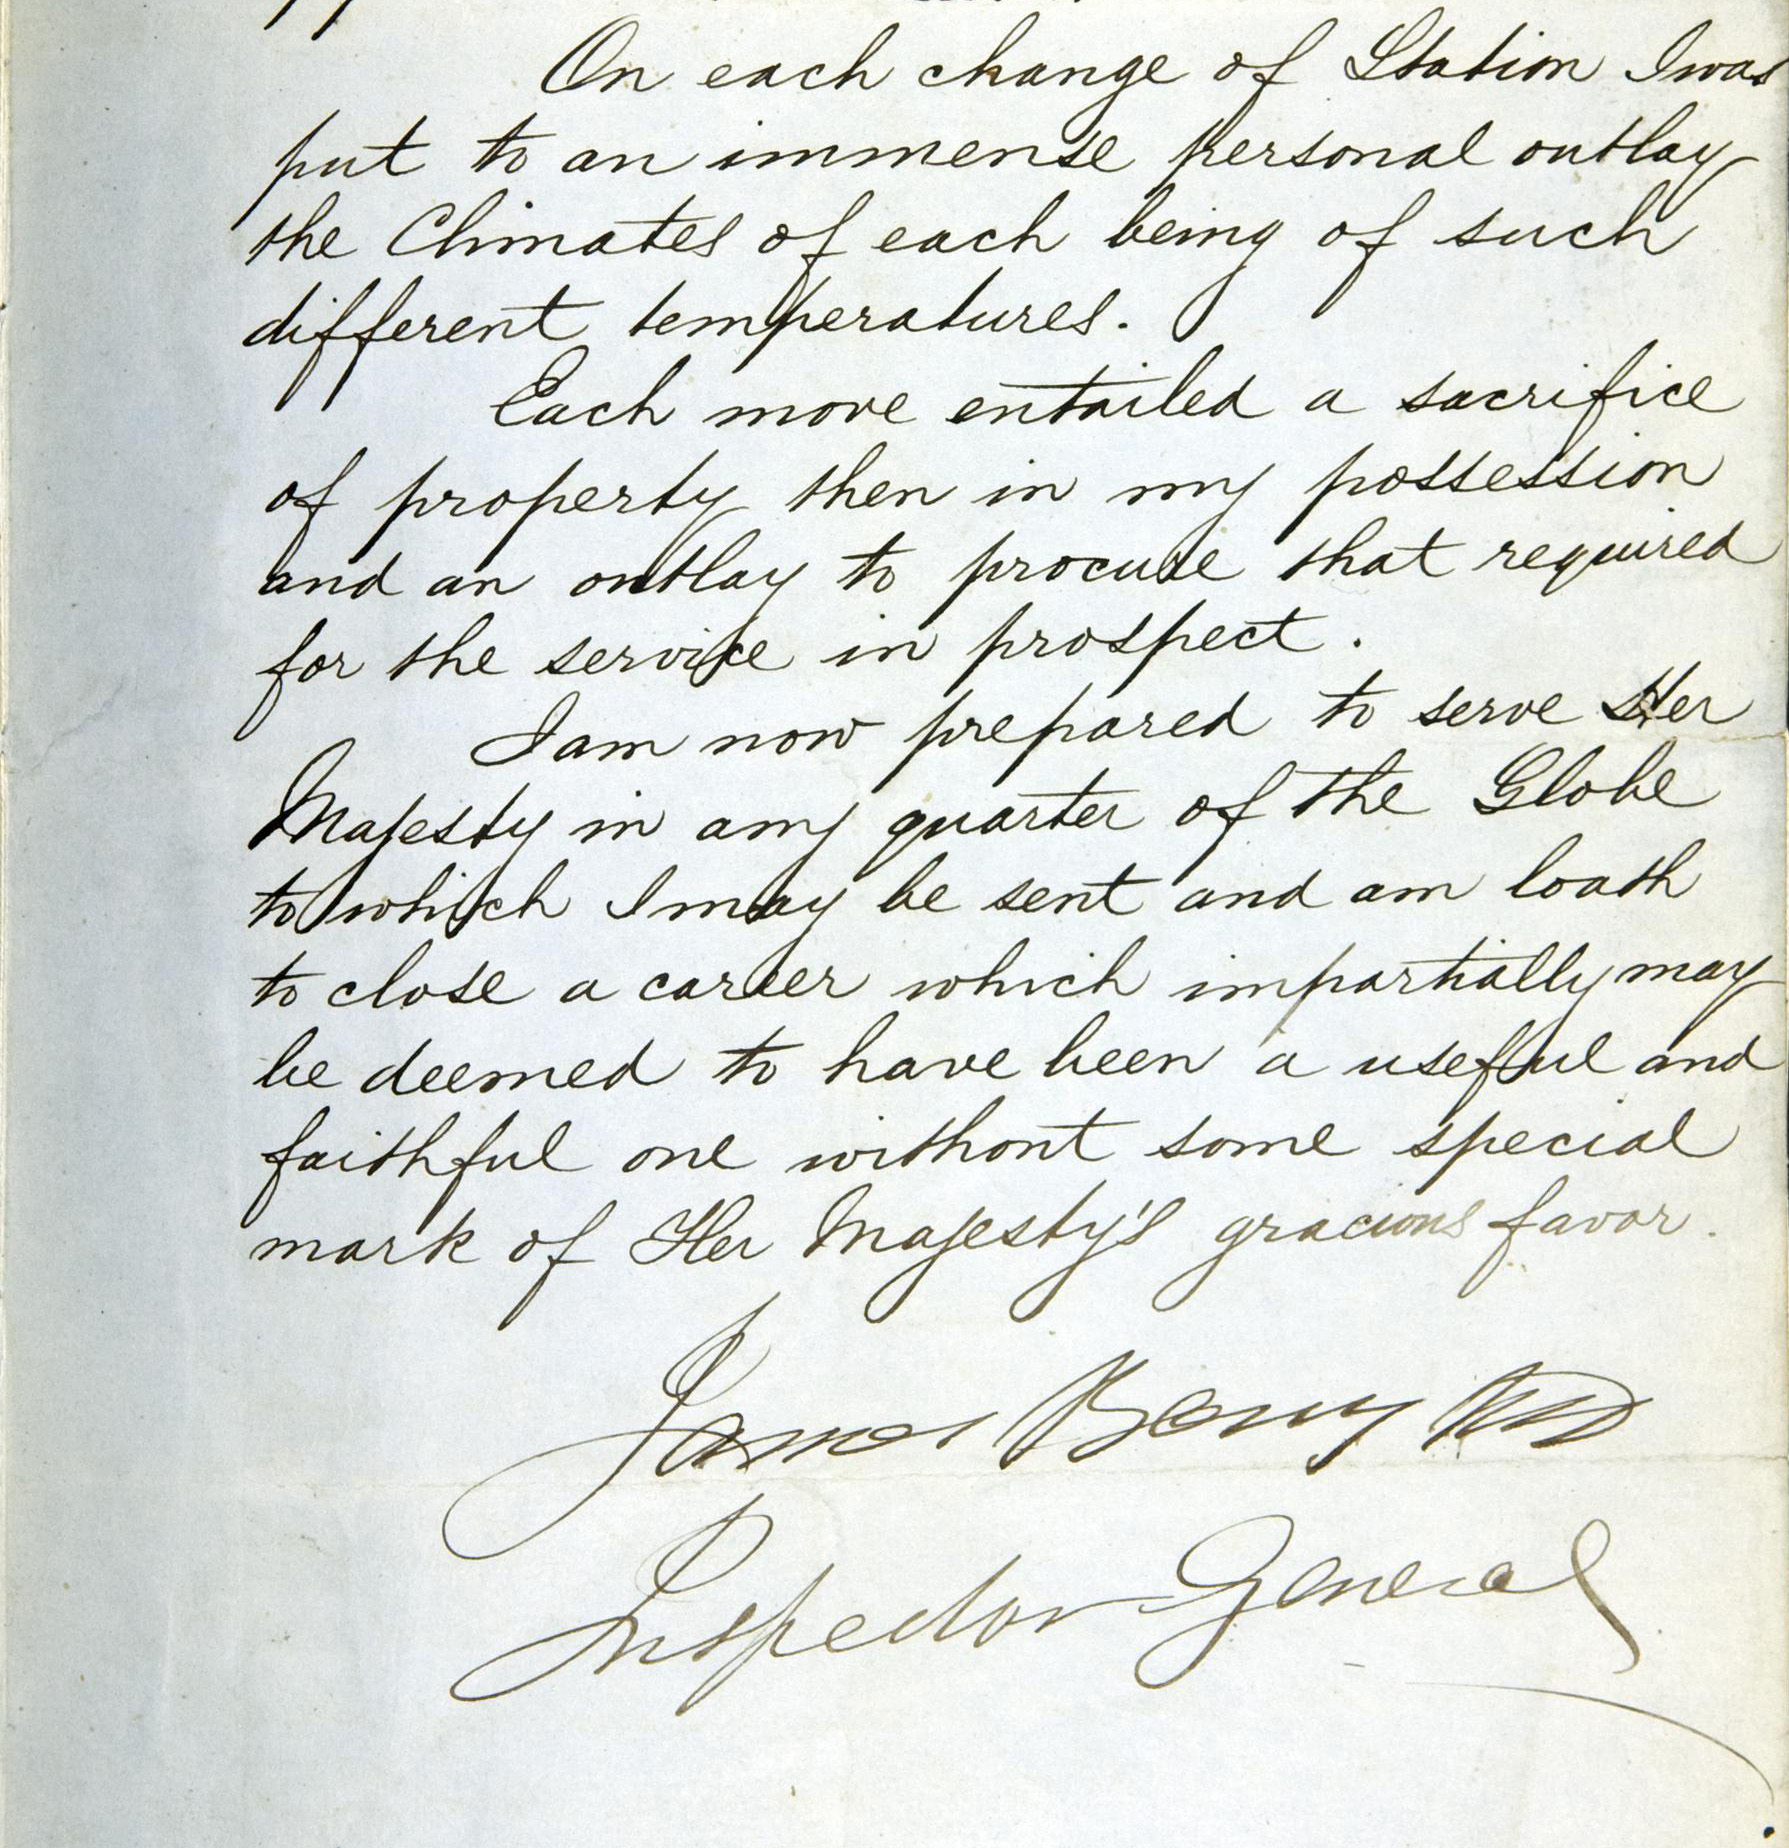 On each change of Station I was
put to an immense personal outlay
the Climates of each being of such
different temperatures.
Each move entailed a sacrifice
of property then in my possession
and an outlay to procure that required
for the service in prospect.
I am now prepared to serve Her
Majesty in any quarter of the Globe
to which I may be sent and am loath
to close a career which impartially may
be deemed to have been a useful and
faithful one without some special
mark of Her Majesty's gracious favor.
James Barry MD
Inspector General